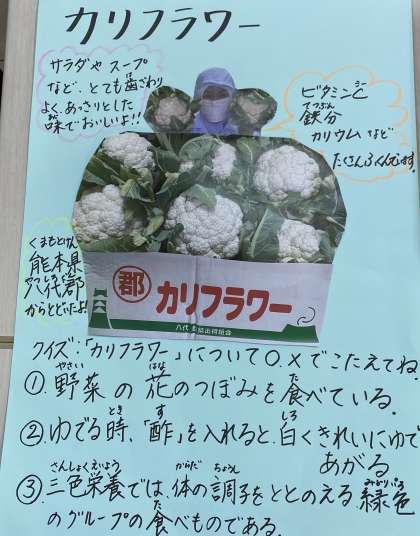 カリフラワー
サラダや スープ
など、とても歯ざわり
よくあっさりとした
味でおいしいよ!!
ビタミンC
シー
鉄分
てつぶん
カリウム など
たくさんふくんでます。
くまもとけん
熊本県
八代郡
からとどいたよ!
郡 カリフラワー
クイズ:「カリフラワー」について○.×でこたえてね。
やさい はな た
①.野菜の花のつぼみを食べている。
とき す しろ
②.ゆでる時、「酢」を入れると、白くきれいにゆで
あがる。
さんしょくえいよう からだ ちょうし みどりいろ
③.三色栄養では、体の調子をととのえる緑色
た
のグループの食べものである。